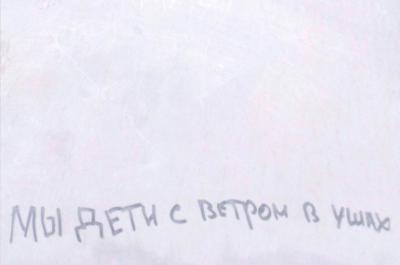 МЫ ДЕТИ С ВЕТРОМ В УШАХ